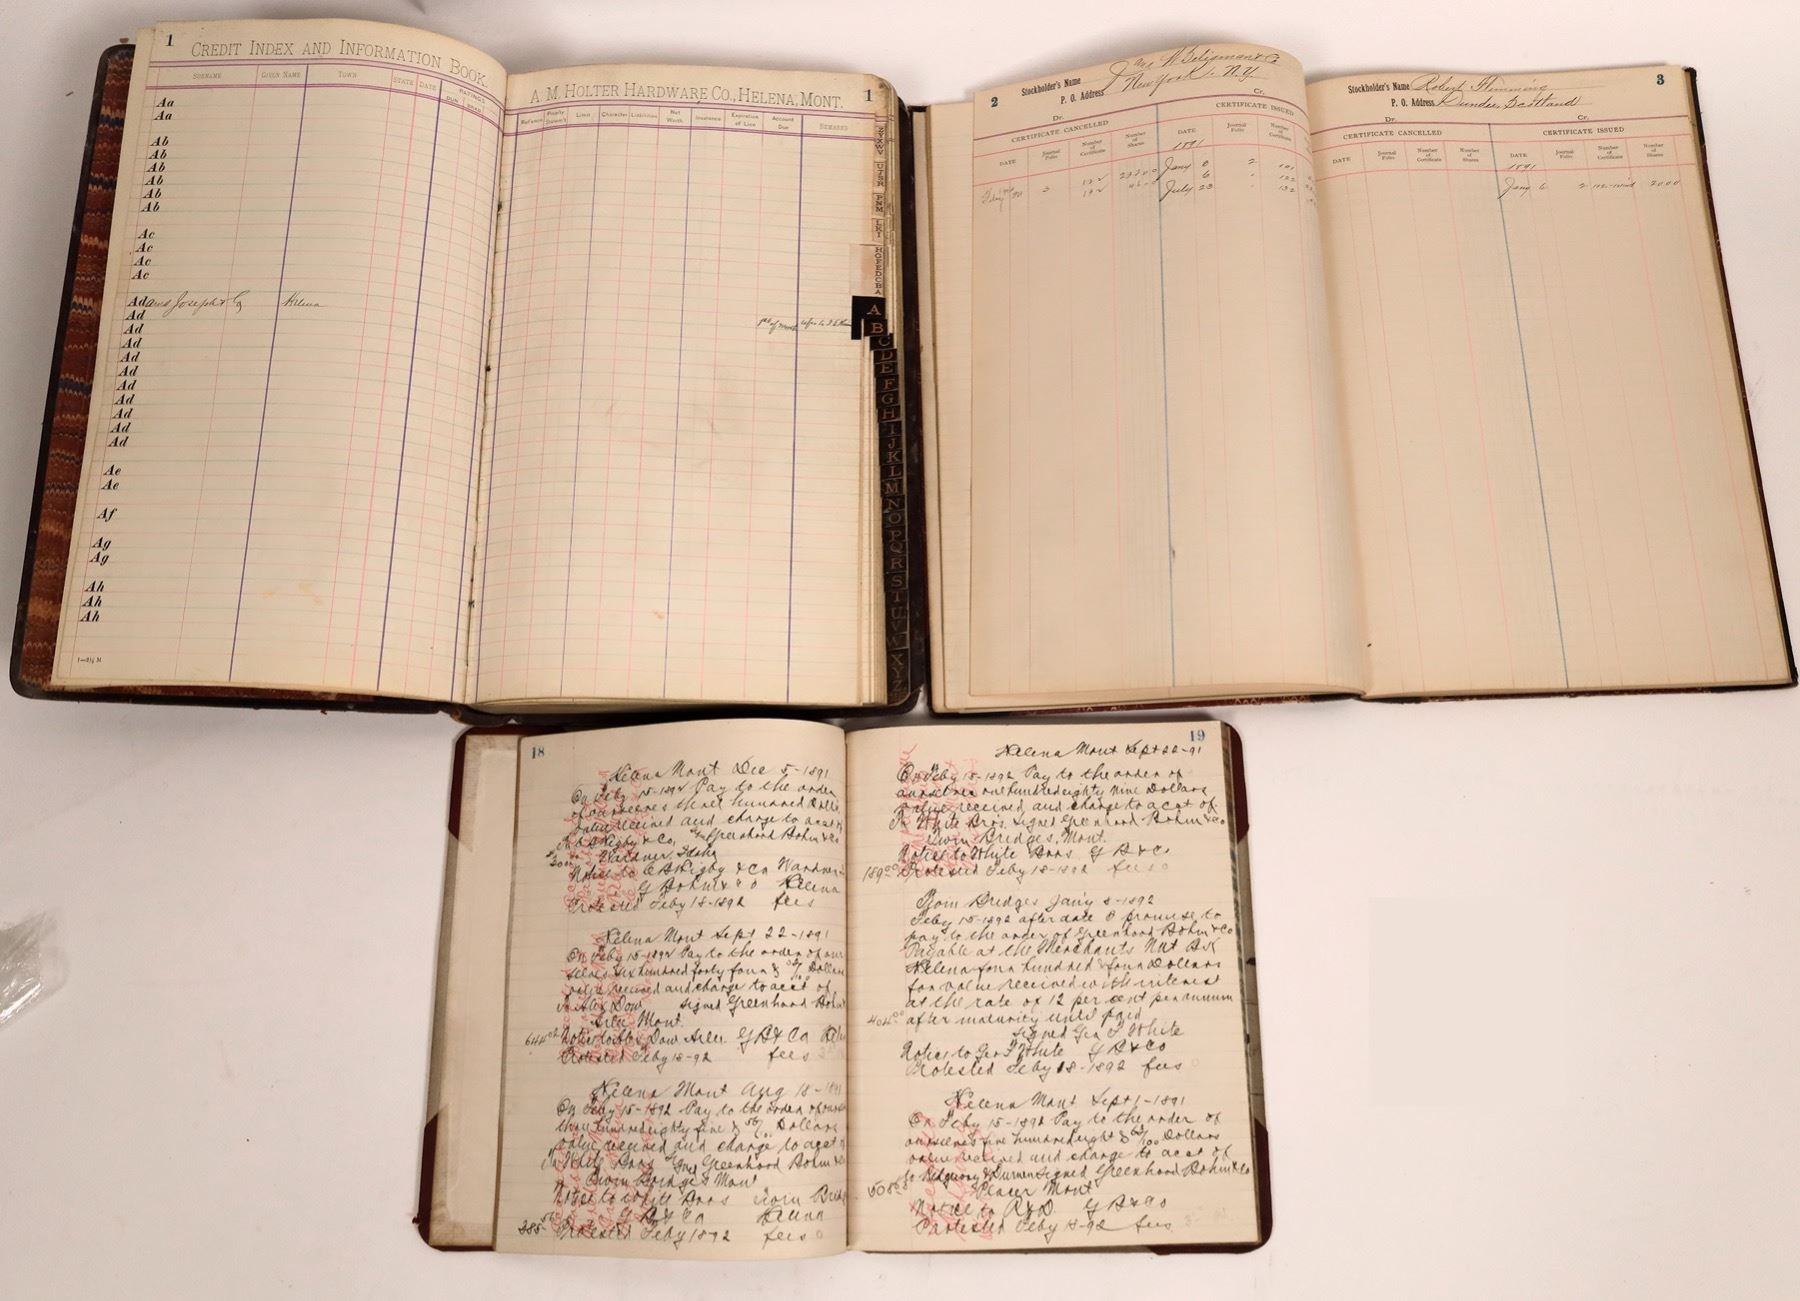 1
CREDIT INDEX AND INFORMATION BOOK.
SURNAME GIVEN NAME TOWN STATE DATE RATINGS
DUN BRAD
Aa
Aa
Ab
Ab
Ab
Ab
Ab
Ab
Ac
Ac
Ac
Ac
Adams Joseph & Co Helena
Ad
Ad
Ad
Ad
Ad
Ad
Ad
Ad
Ad
Ad
Ae
Ae
Af
Ag
Ag
Ah
Ah
Ah
A. M. HOLTER HARDWARE CO., HELENA, MONT. 1
Limit Character Liabilities Net Worth Insurance Expiration of Lien Account Due REMARKS
A
B
C
D
E
F
G
H
I
J
K
L
M
N
O
P
Q
R
S
T
U
V
W
X
Y
Z
2 Stockholder's Name J and W Seligman & Co
P. O. Address New York N.Y.
Dr. Cr.
CERTIFICATE CANCELLED CERTIFICATE ISSUED
DATE Journal Folio Number of Certificate Number of Shares DATE Journal Folio Number of Certificate
1891
Jany 6 2 101
6 122
July 23 132
Stockholder's Name Robert Flemming 3
P. O. Address Dundee Scotland
Dr. Cr.
CERTIFICATE CANCELLED CERTIFICATE ISSUED
DATE Journal Folio Number of Certificate Number of Shares DATE Journal Folio Number of Certificate Number of Shares
1891
Jany 6 2 2000
18
Helena Mont Dec 5-1891
On Feby 15-1892 Pay to the order
of ourselves three hundred Dolls
value received and charge to acct of
To C B Rigby & Co, Greenhood Bohm & Co
300 Wardner, Idaho
Notice to C B Rigby & Co Wardner
G Bohm & Co Helena
Protested Feby 18-1892 fees
Helena Mont Sept 22-1891
On Feby 15-1892 Pay to the order of our
selves six hundred forty four & Dollars
value received and charge to acct of
To Alex Dow signed Greenhood Bohm
Mont.
644 02 Notice to Alex Dow G B & Co
Protested Feby 18-92 fees
Helena Mont Aug 18-1891
On Feby 15-1892 Pay to the order of
three hundred eighty five & 56/ Dollars
value received and charge to acct of
To White Bros Greenhood Bohm & Co
Twin Bridges Mont
Notice to White Bros Twin Bridges
G B & Co Helena
385 56 Protested Feby 18 92 fees
19
Helena Mont Sept 22-91
On Feby 15-1892 Pay to the order of
ourselves one hundred eighty nine Dollars
value received and charge to acct of
To White Bros. signed Greenhood Bohm & Co
Twin Bridges, Mont.
Notice to White Bros G B & Co
189 00 Protested Feby 18-1892 fees
Twin Bridges Jany 8-1892
Feby 15-1892 after date I promise to
pay to the order of Greenhood Bohm & Co
Payable at the Merchants Nat Bk
Helena four hundred & four Dollars
for value received with interest
at the rate of 12 per cent per annum
404 00 after maturity until paid
signed Geo F White
Notice to Geo F White G B & Co
Protested Feby 18-1892 fees
Helena Mont Sept 1-1891
On Feby 15-1892 Pay to the order of
ourselves five hundred eight & /100 Dollars
value received and charge to acct of
To Ridgway & signed Greenhood Bohm & Co
508 Placer Mont
Notice to R & D G B & Co
Protested Feby 18-92 fees